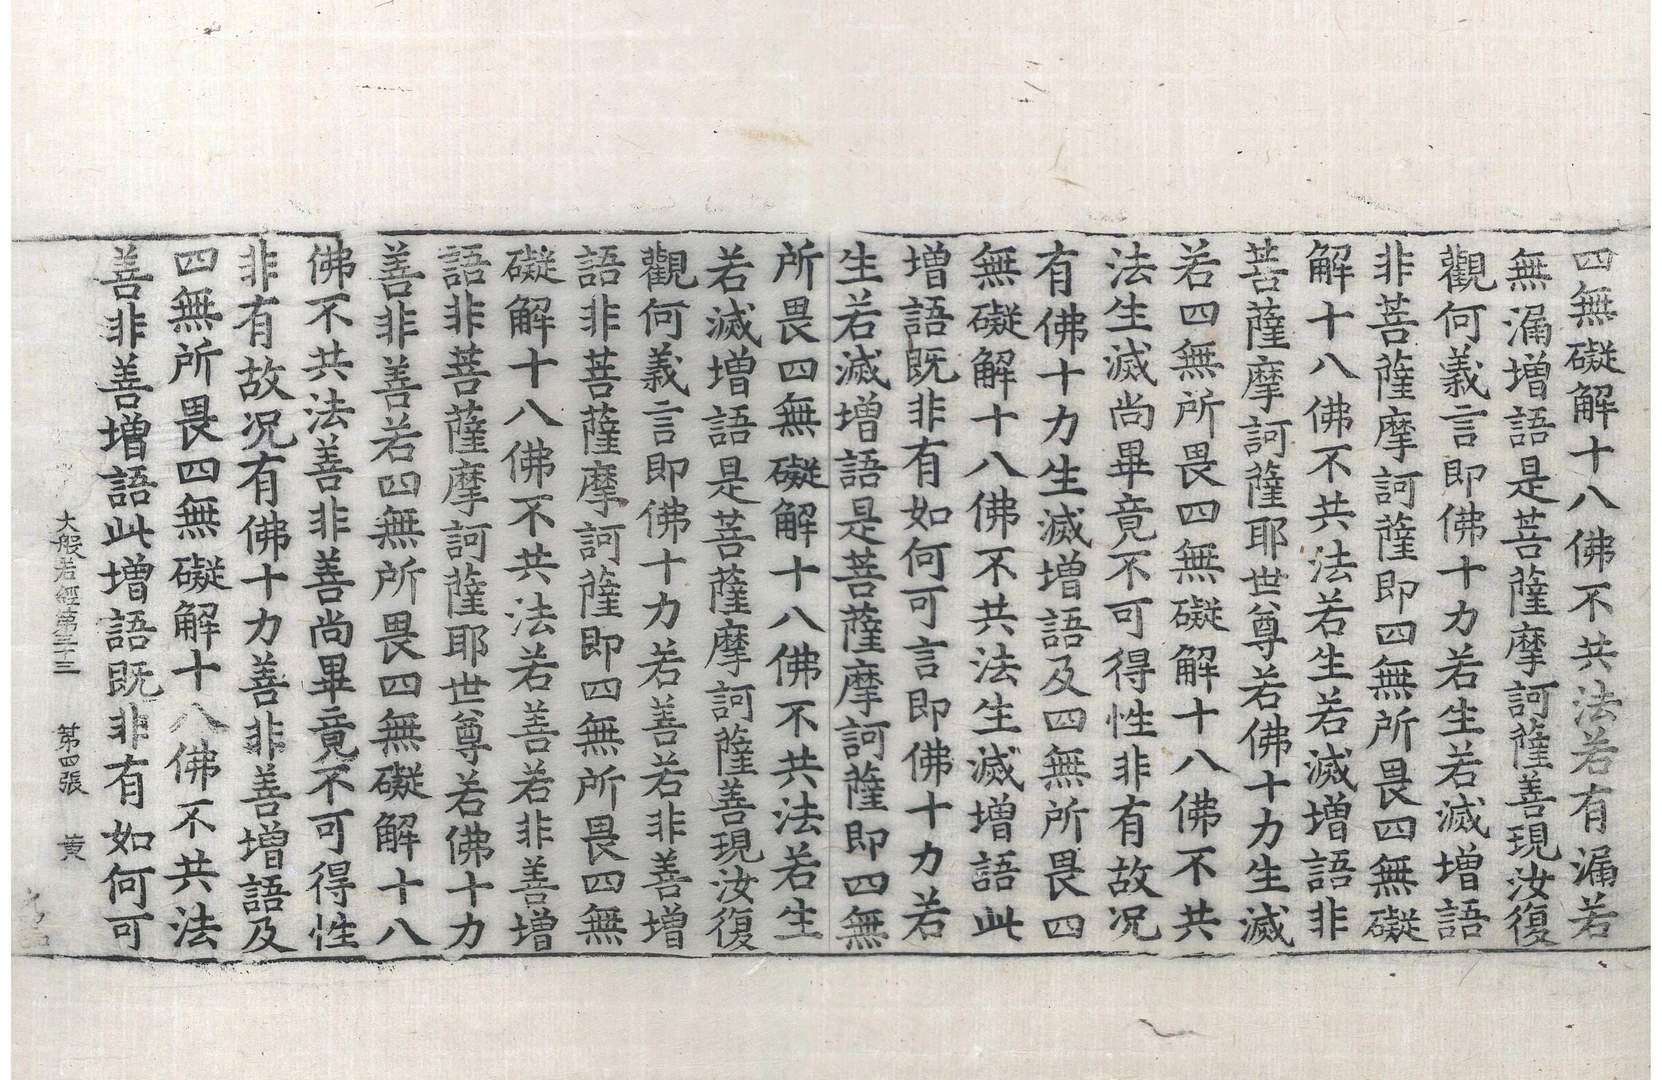 四無礙解十八佛不共法若有漏若
無漏增語是菩薩摩訶薩善現汝復
觀何義言即佛十力若生若滅增語
非菩薩摩訶薩即四無所畏四無礙
解十八佛不共法若生若滅增語非
菩薩摩訶薩耶世尊若佛十力生滅
若四無所畏四無礙解十八佛不共
法生滅尚畢竟不可得性非有故況
有佛十力生滅增語及四無所畏四
無礙解十八佛不共法生滅增語此
增語既非有如何可言即佛十力若
生若滅增語是菩薩摩訶薩即四無
所畏四無礙解十八佛不共法若生
若滅增語是菩薩摩訶薩善現汝復
觀何義言即佛十力若善若非善增
語非菩薩摩訶薩即四無所畏四無
礙解十八佛不共法若善若非善增
語非菩薩摩訶薩耶世尊若佛十力
善非善若四無所畏四無礙解十八
佛不共法善非善尚畢竟不可得性
非有故况有佛十力善非善增語及
四無所畏四無礙解十八佛不共法
善非善增語此增語既非有如何可
大般若經第三十三 第四張 黃